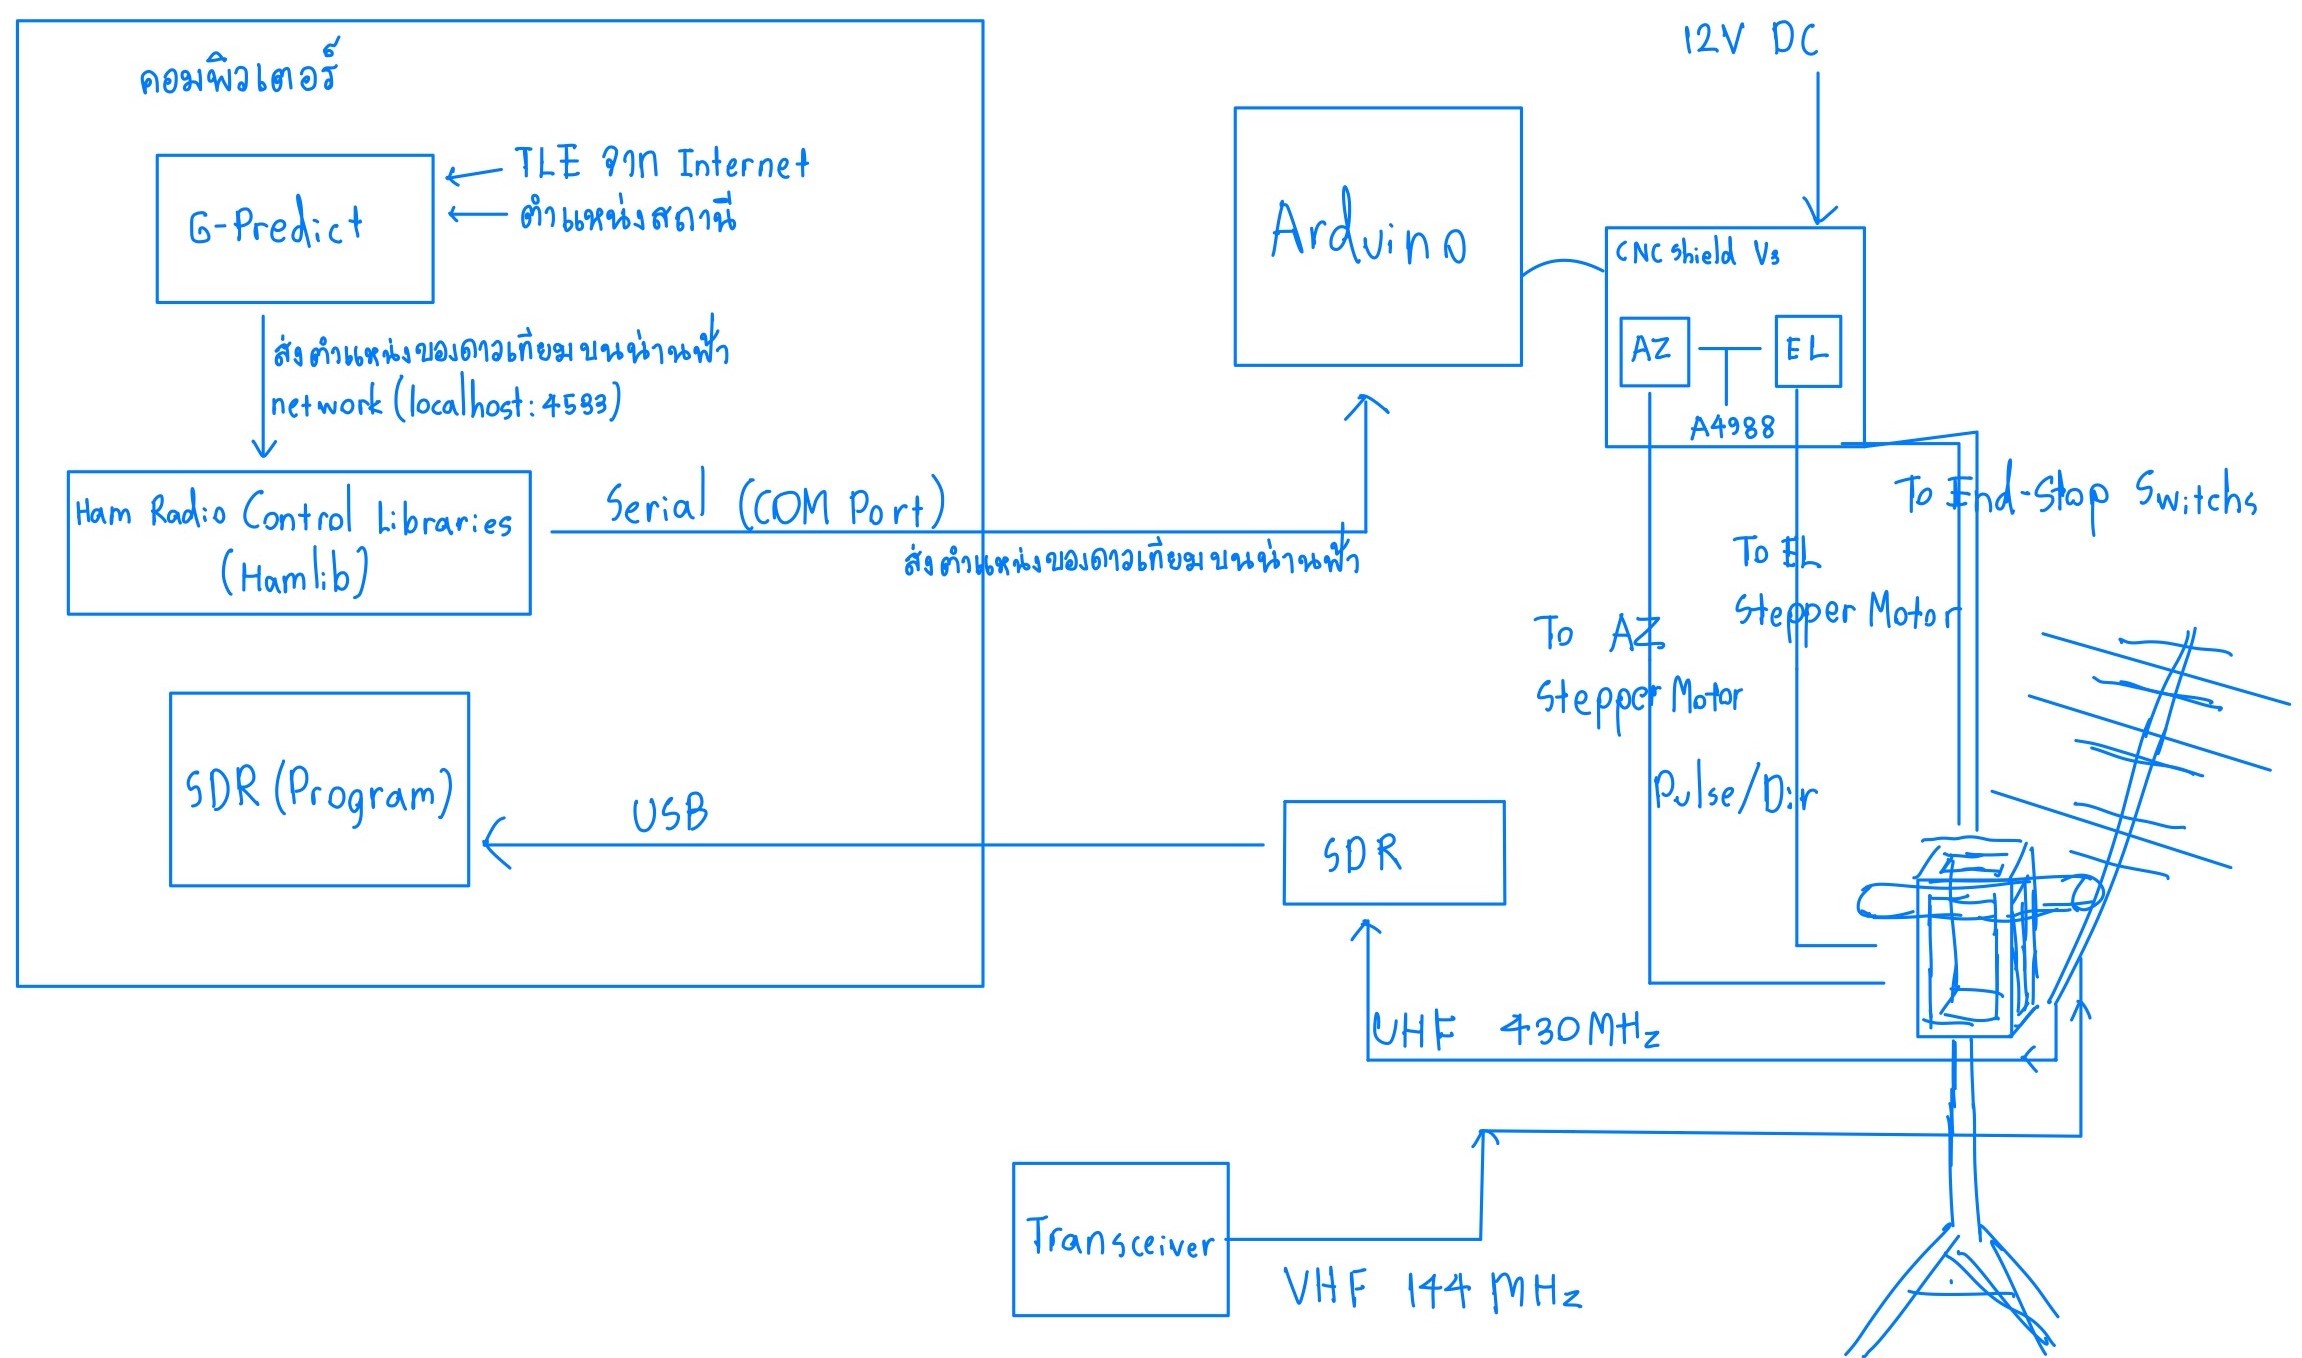 คอมพิวเตอร์
G-Predict
TLE จาก Internet
ตำแหน่งสถานี
ส่งตำแหน่งของดาวเทียมบนน่านฟ้า
network (localhost:4533)
Ham Radio Control Libraries
(Hamlib)
Serial (COM Port)
ส่งตำแหน่งของดาวเทียมบนน่านฟ้า
SDR (Program)
USB
SDR
Arduino
12V DC
CNC Shield V3
AZ
EL
A4988
To End-Stop Switchs
To EL
Stepper Motor
To AZ
Stepper Motor
Pulse/Dir
UHF 430MHz
Transceiver
VHF 144 MHz